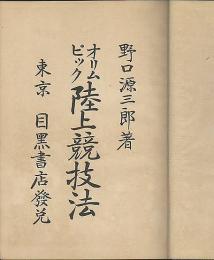 野口源三郎著
オリムピック陸上競技法
東京 目黒書店發兌